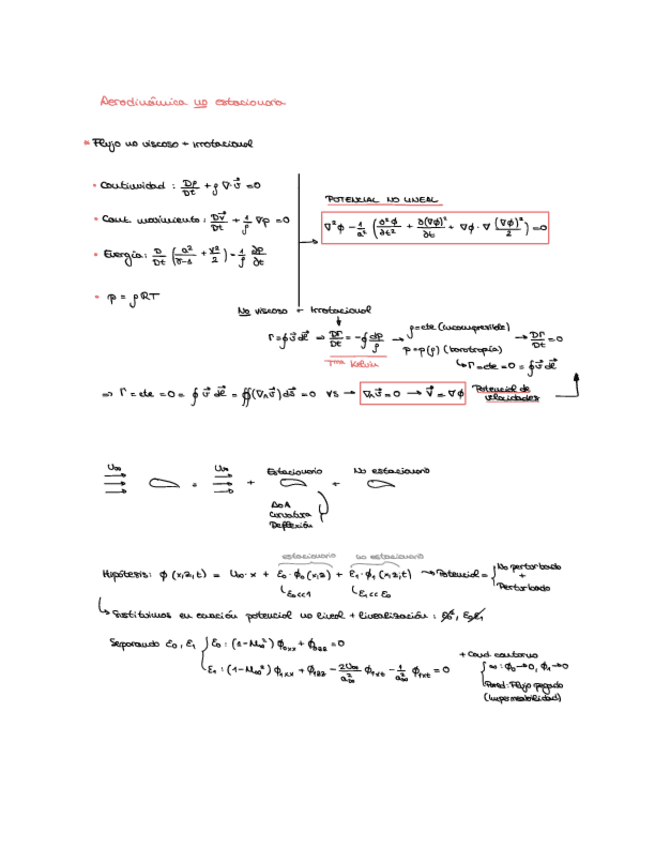 Aerodinámica no estacionaria
Flujo no viscoso + irrotacional
• Continuidad : Dρ/Dt + ρ ∇·v⃗ = 0
• Cant. movimiento : Dv⃗/Dt + 1/ρ ∇p = 0
• Energía : D/Dt (a²/(γ-1) + v²/2) = 1/ρ ∂p/∂t
• p = ρRT
POTENCIAL NO LINEAL
∇²φ - 1/a² (∂²φ/∂t² + ∂(∇φ)²/∂t + ∇φ·∇ (∇φ)²/2) = 0
No viscoso + Irrotacional
Γ = ∮ v⃗ dl⃗ ⇒ DΓ/Dt = -∮ dp/ρ → ρ = cte (incompresible) → DΓ/Dt = 0
p = p(ρ) (barotropía)
Tma Kelvin
↳ Γ = cte = 0 = ∮ v⃗ dl⃗
⇒ Γ = cte = 0 = ∮ v⃗ dl⃗ = ∯(∇∧v⃗) ds⃗ = 0 ∀S → ∇∧v⃗ = 0 → v⃗ = ∇φ Potencial de velocidades
U∞ = U∞ + Estacionario + No estacionario
AoA
Curvatura
Deflexión
estacionario no estacionario
Hipótesis: φ (x,z,t) = U∞·x + ε₀·φ₀(x,z) + ε₁·φ₁(x,z,t) → Potencial = { No perturbado + Perturbado
↳ ε₀<<1 ↳ ε₁<<ε₀
↳ Sustituimos en ecuación potencial no lineal + linealización : ε₀², ε₀ε₁
Separando ε₀, ε₁ { ε₀ : (1-M∞²) φ₀xx + φ₀zz = 0
ε₁ : (1-M∞²) φ₁xx + φ₁zz - 2U∞/a∞² φ₁xt - 1/a∞² φ₁xt = 0
+ Cond. contorno
∞ : φ₀→0, φ₁→0
Pared: Flujo pegado
(Impermeabilidad)